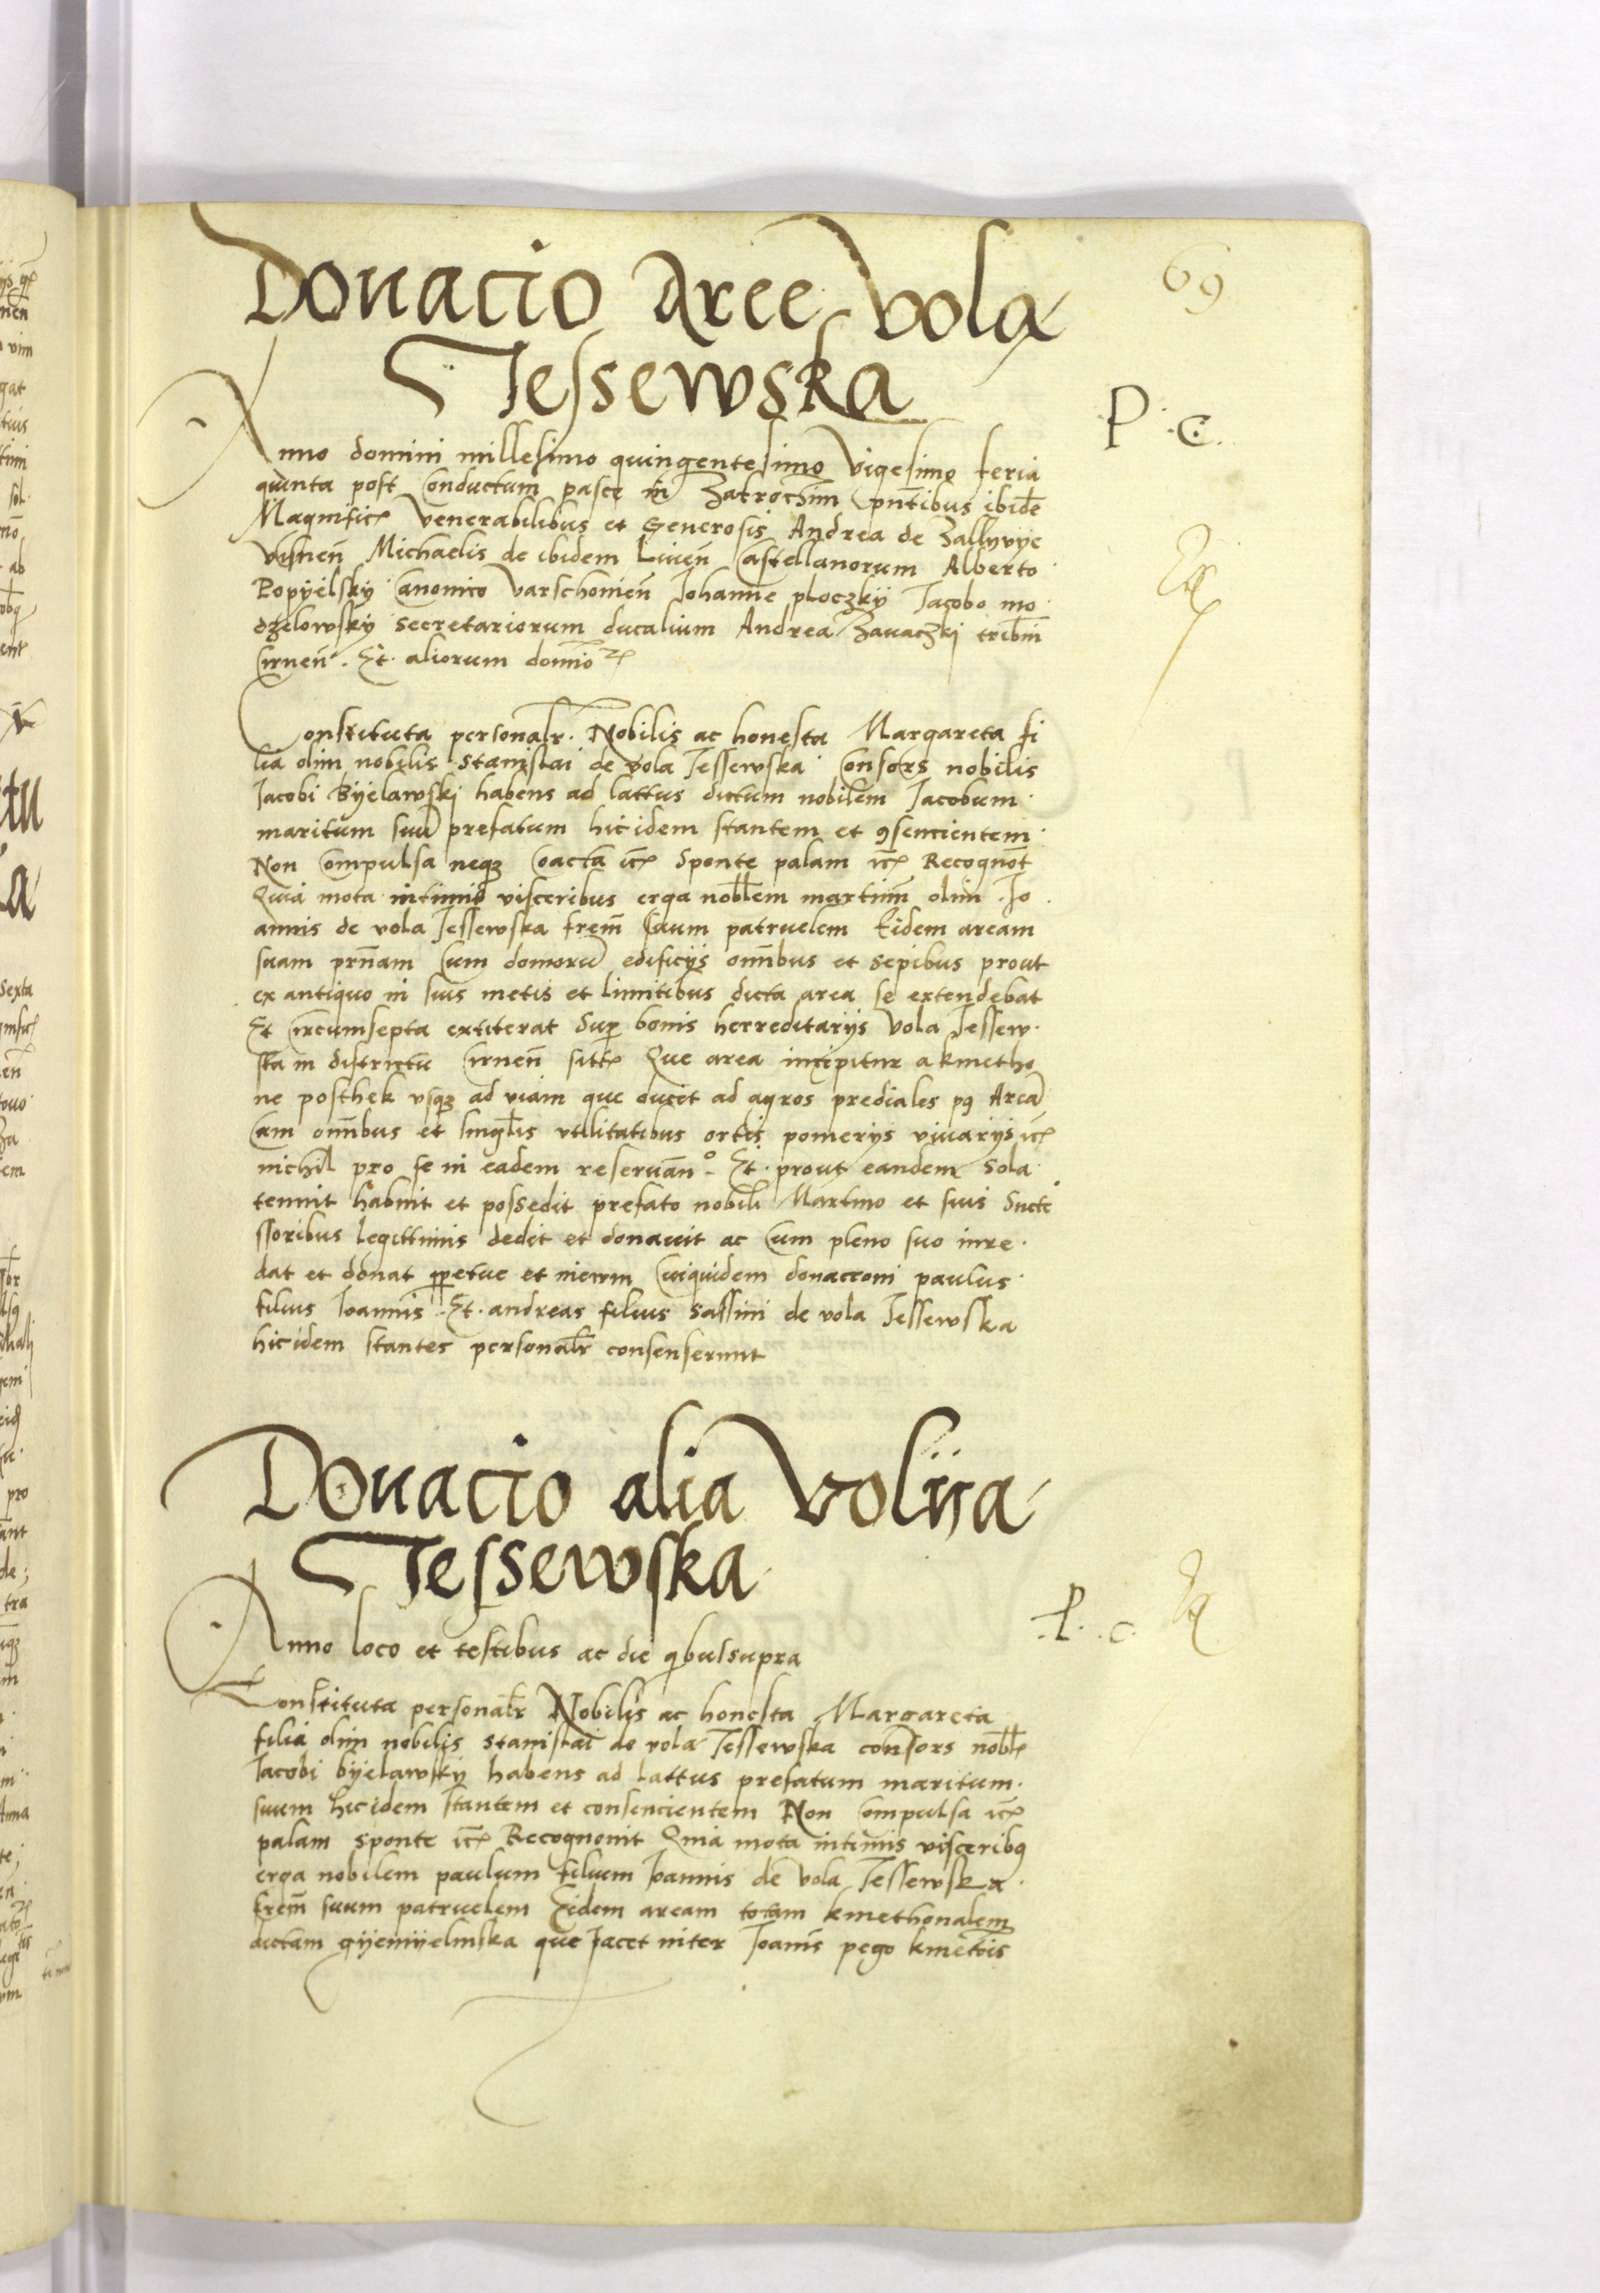 69
Donacio Aree Vola
Tessewska
P. C.
Anno domini millesimo quingentesimo vigesimo feria
quinta post Conductum pasce in Zatrochim pn̄tibus ibidē
Magnific̄ Venerabilibus et Generosis Andrea de Zallyvye
Visnen̄ Michaelis de ibidem Liuen̄ Castellanorum Alberto
Popyelsky Canonico Varschouien̄ Johanne ploczky Jacobo mo
dzelowsky secretariorum ducalium Andrea Zauaczkj tribūn
Cirnen̄. Et. aliorum domino
Constituta personalr̄. Nobilis ac honesta Margareta fi
lia olim nobilis Stanislai de vola Tessewska Consors nobilis
Jacobi Byelawskj habens ad lattus dictum nobilem Jacobum
maritum suū prefatum hic idem stantem et ꝯsencientem
Non Compulsa neqꝫ Coacta ic̄ Sponte palam ic̄ Recognot̄
Quia mota intimis visceribus erga nobl̄em martinū olim Jo
annis de vola Tessewska frem̄ suum patruelem Eidem aream
suam prn̄am Cum domorū edificijs om̄ibus et sepibus prout
ex antiquo in suis metis et limitibus dicta area se extendebat
Et Circumsepta extiterat Sup bonis herreditarijs Vola Tessew
ska in districtu Cirnen̄ sitt̄ Que area incipitur a kmetho
ne posthek vsqꝫ ad viam que ducit ad agros prediales pꝯ Areā
Cum om̄ibus et singl̄is vtilitatibus ortis pomerijs viuarijs ic̄
nichil pro se in eadem reseruan̄o. Et. prout eandem Sola
tenuit habuit et possedit prefato nobili Martino et suis Succe
ssoribus legittimis dedit et donauit ac Cum pleno suo iure
dat et donat ꝑpetue et in ewm Cuiquidem donacioni paulus
filius Joannis. Et. andreas filius Sassini de vola Tessewska
hic idem stantes personalr̄ consenserunt
Donacio alia Volija
Tessewska
P. C.
Anno loco et testibus ac die qibus supra
Constituta personalr̄ Nobilis ac honesta Margareta
filia olim nobilis Stanislai de vola Tessewska consors nobl̄
Jacobi byelawsky habens ad lattus prefatum maritum
suum hic idem stantem et consencientem Non Compulsa ic̄
palam sponte ic̄ Recognouit Quia mota intimis visceribꝯ
erga nobilem paulum filium Joannis de Vola Tessewska
frem̄ suum patruelem Eidem aream totam kmethonalem
dictam gyemyelinska que Jacet inter Joanis pego kmetois